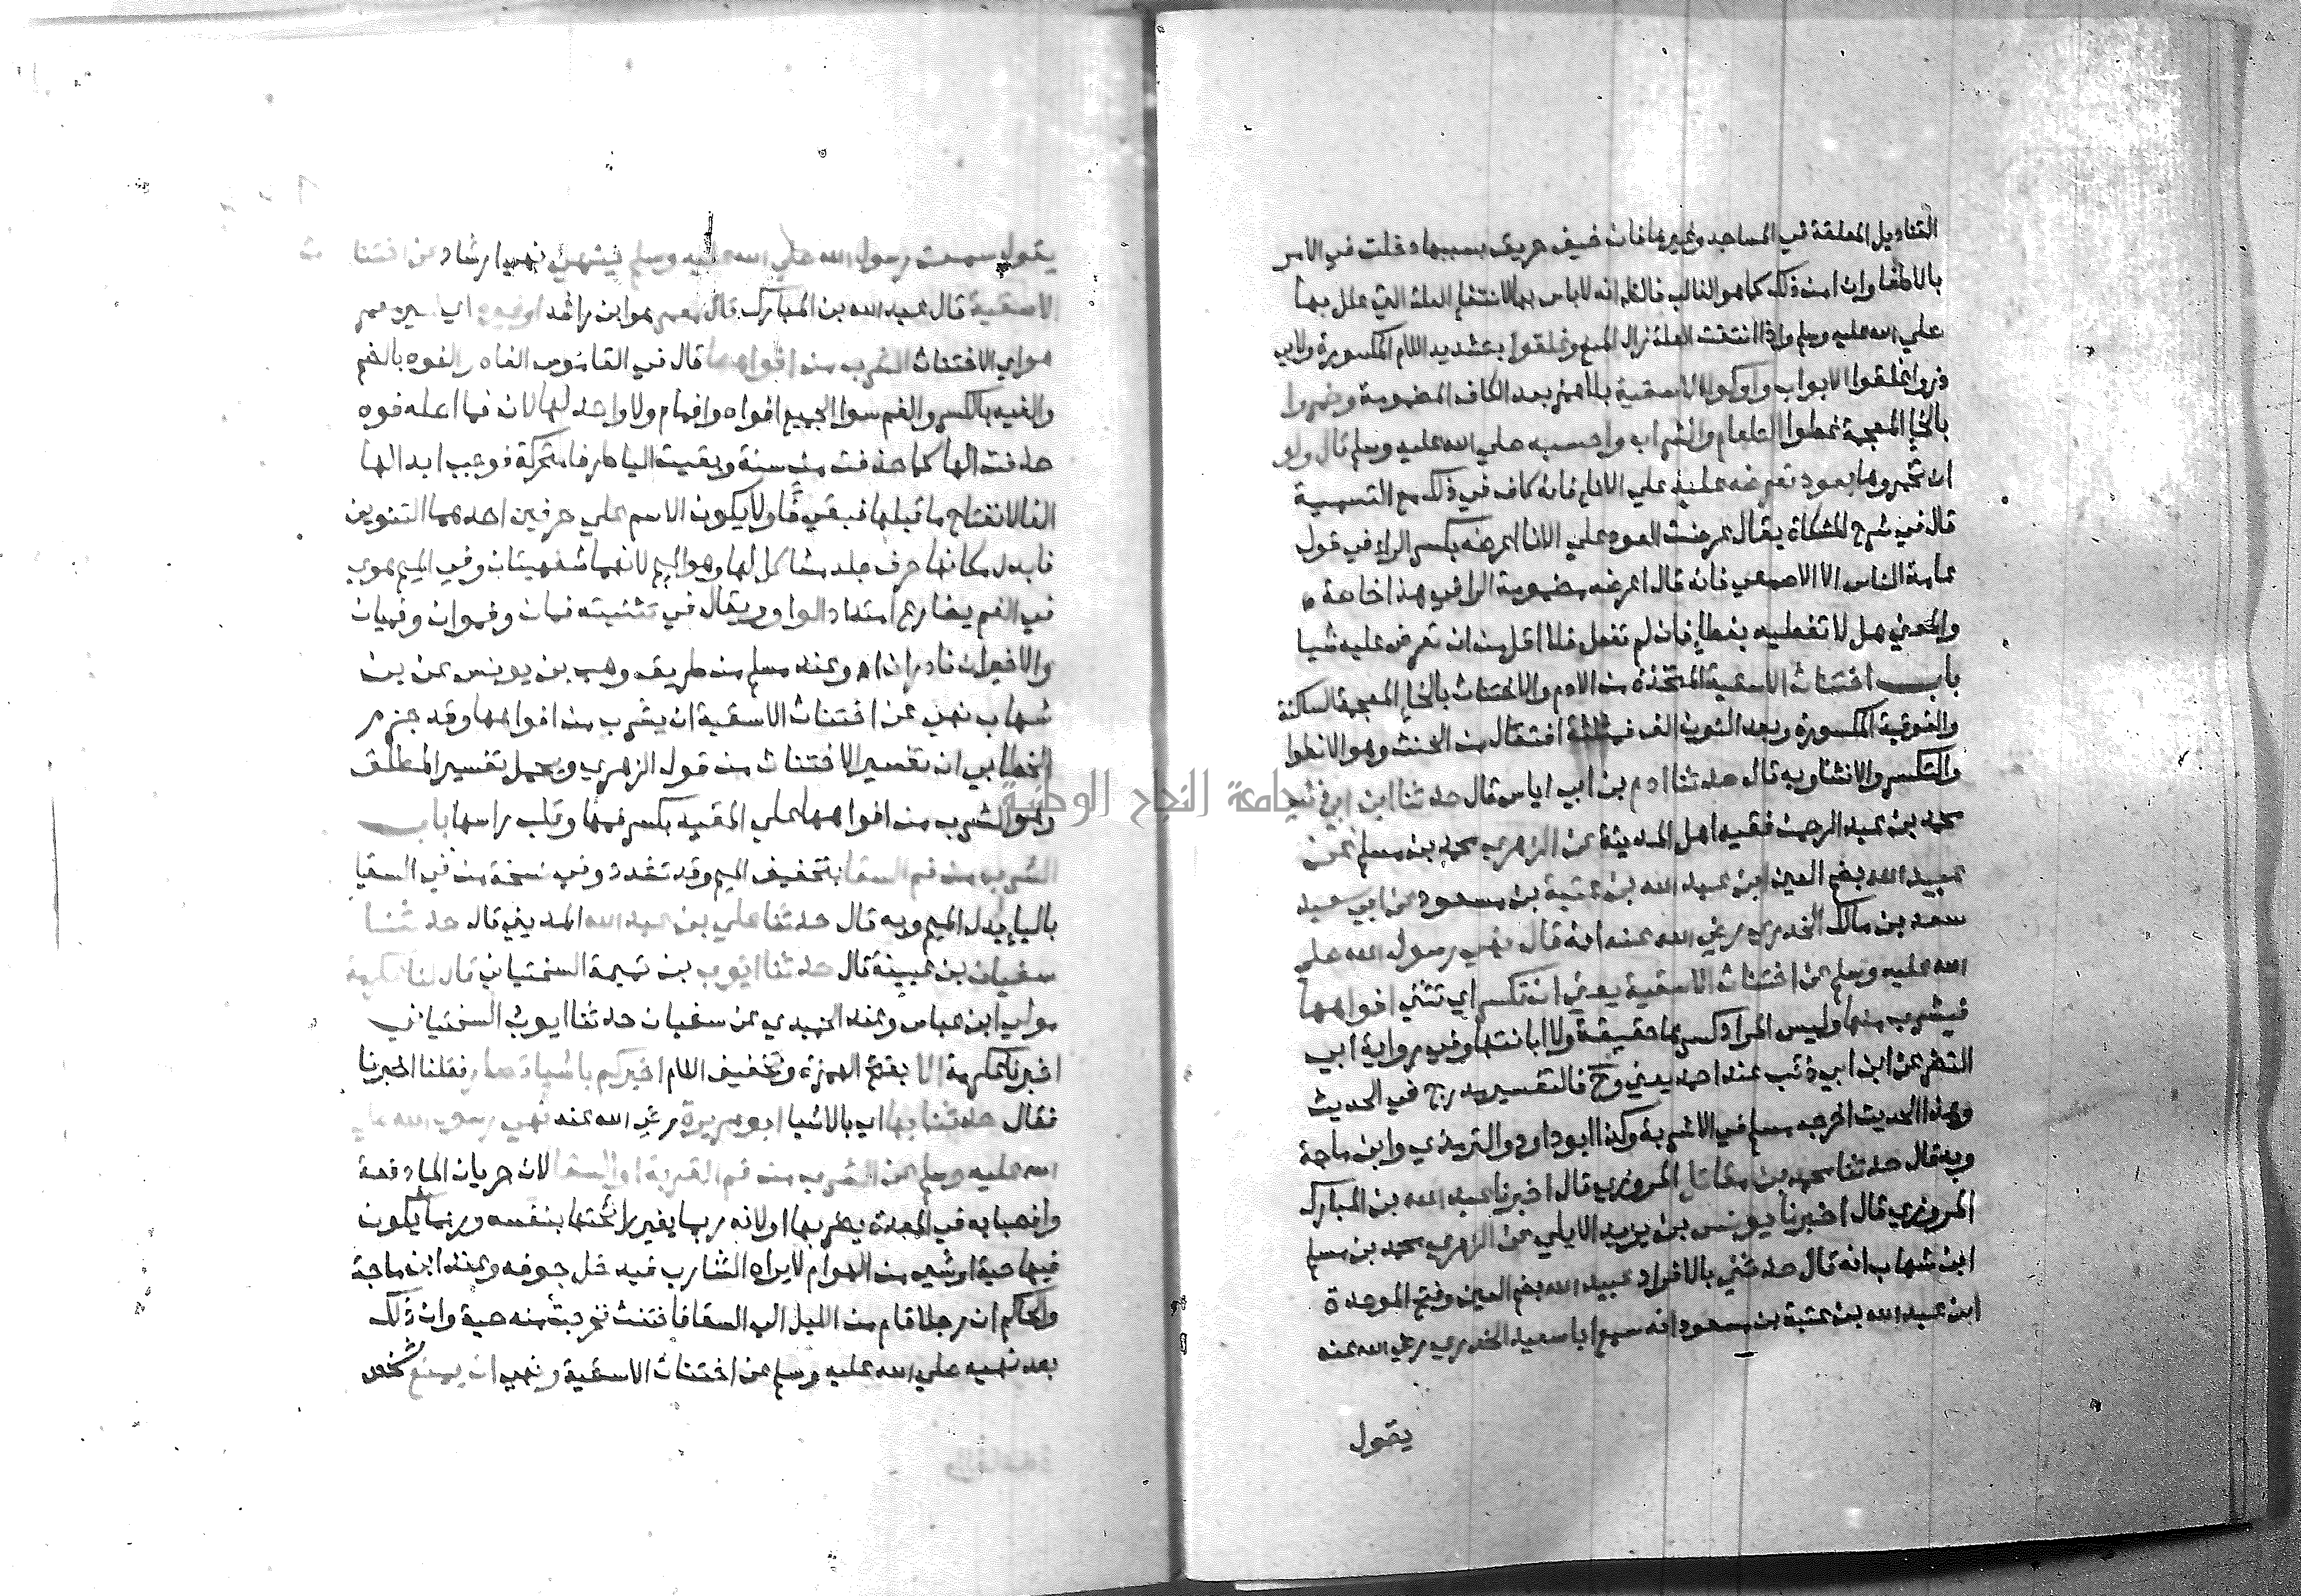 القناديل المعلقة في المساجد وغيرها فان خيف حريق بسببها دخلت في الامر
بالاطفا وان امن ذلك كما هو الغالب فالظاهر انه لا باس بها لانتفا العلة التي علل بها
صلي الله عليه وسلم واذا انتفت العلة زال المنع وغلقوا بتشديد اللام المكسورة ولابي
ذر واغلقوا الابواب واوكوا الاسقية بلا همز بعد الكاف المضمومة وخمروا
بالخا المعجمة غطوا الطعام والشراب واحسبه صلي الله عليه وسلم قال ولو
ان تخمروها بعود تعرضه عليه علي الاناء فانه كاف في ذلك مع التسمية
قال في شرح المشكاة يقال عرضت العود علي الانا اعرضه بكسر الراء في قول
عامة الناس الا الاصمعي فانه قال اعرضه مضمومة الرا في هذا خاصة
والمعني هل لا تغطيه بغطاء فان لم تفعل فلا اقل من ان تعرض عليه شيا
باب اختناث الاسقية المتخذة من الادم والاختناث بالخاء المعجمة الساكنة
والفوقية المكسورة وبعد النون الف فمثلثة افتعال من الخنث وهو الانطوا
والتكسر والانثنا وبه قال حدثنا ادم بن ابي اياس قال حدثنا ابن ابي ذئب
محمد بن عبد الرحمن فقيه اهل المدينة عن الزهري محمد بن مسلم عن
عبيد الله بضم العين ابن عبد الله بن عتبة بن مسعود عن ابي سعيد
سعد بن مالك الخدري رضي الله عنه انه قال نهي رسول الله صلي
الله عليه وسلم عن اختناث الاسقية يعني ان تكسر اي تثني افواهها
فيشرب منها وليس المراد كسرها حقيقة ولا ابانتها وفي رواية ابي
النضر عن ابن ابي ذئب عند احمد يعني وح فالتفسير مدرج في الحديث
وهذا الحديث اخرجه مسلم في الاشربة وكذا ابو داود والترمذي وابن ماجة
وبه قال حدثنا محمد بن مقاتل المروزي قال اخبرنا عبد الله بن المبارك
المروزي قال اخبرنا يونس بن يزيد الايلي عن الزهري محمد بن مسلم
ابن شهاب انه قال حدثني بالافراد عبيد الله بضم العين وفتح الموحدة
ابن عبد الله بن عتبة بن مسعود انه سمع ابا سعيد الخدري رضي الله عنه
يقول
يقول سمعت رسول الله صلي الله عليه وسلم ينهي نهي ارشاد عن اختنا ث
الاسقية قال عبد الله بن المبارك قال معمر هو ابن راشد او غيره اي غير معمر
هو اي الاختناث الشرب من افواهها قال في القاموس الفاه والفوه بالضم
والفيه بالكسر والفم سوا الجمع افواه وافمام ولا واحد لها لان فما اصله فوه
حذفت الها كما حذفت من سنة وبقيت اليا طرفا متحركة فوجب ابدالها
الفا لانفتاح ما قبلها فبقي فا ولا يكون الاسم علي حرفين احدهما التنوين
فابدل مكانها حرف جلد مشاكل لها وهو الميم لانهما شفهيتان وفي الميم هوي
في الفم يضارع امتداد الواو ويقال في تثنيته فمان وفموان وفميان
والاخيران نادران اه وعند مسلم من طريق وهب بن يونس عن بن
شهاب نهي عن اختناث الاسقية ان يشرب من افواهها وقد جزم
الخطابي ان تفسير الاختناث من قول الزهري ويحمل تفسير المطلق
وهو الشرب من افواهها علي المقيد بكسر فمها وقلب راسها باب
الشرب من فم السقا بتخفيف الميم وقد تشدد وفي نسخة من في السقا
باليا بدل الميم وبه قال حدثنا علي بن عبد الله المديني قال حدثنا
سفيان بن عيينة قال حدثنا ايوب بن تميمة السختياني قال لنا عكرمة
مولي ابن عباس وعند الحميدي عن سفيان حدثنا ايوب السختياني
اخبرنا عكرمة الا بفتح الهمزة وتخفيف اللام اخبركم باشياء قصار فقلنا اخبرنا
فقال حدثنا بها اي بالاشيا ابو هريرة رضي الله عنه نهي رسول الله صلي
الله عليه وسلم عن الشرب من فم القربة او السقا لان جريان الماء دفعة
وانصبابه في المعدة يضر بها او لانه ربما يغير رائحتها بنفسه وربما يكون
فيها حية او شي من الهوام لا يراه الشارب فيدخل جوفه وعند ابن ماجة
والحاكم ان رجلا قام من الليل الي السقا فاختنث فخرجت منه حية وان ذلك
بعد نهيه صلي الله عليه وسلم عن اختناث الاسقية ونهي ان يمنع شخص
جامعة النجاح الوطنية